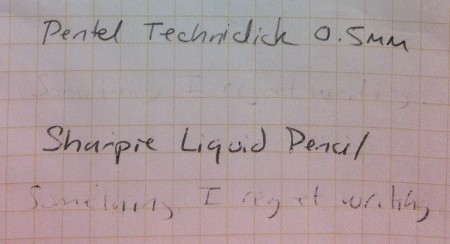 Pentel Techniclick 0.5mm
Something I regret writing.
Sharpie Liquid Pencil
Something I regret writing